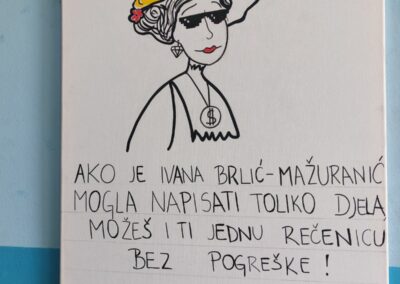 $
AKO JE IVANA BRLIĆ-MAŽURANIĆ
MOGLA NAPISATI TOLIKO DJELA,
MOŽEŠ I TI JEDNU REČENICU
BEZ POGREŠKE!